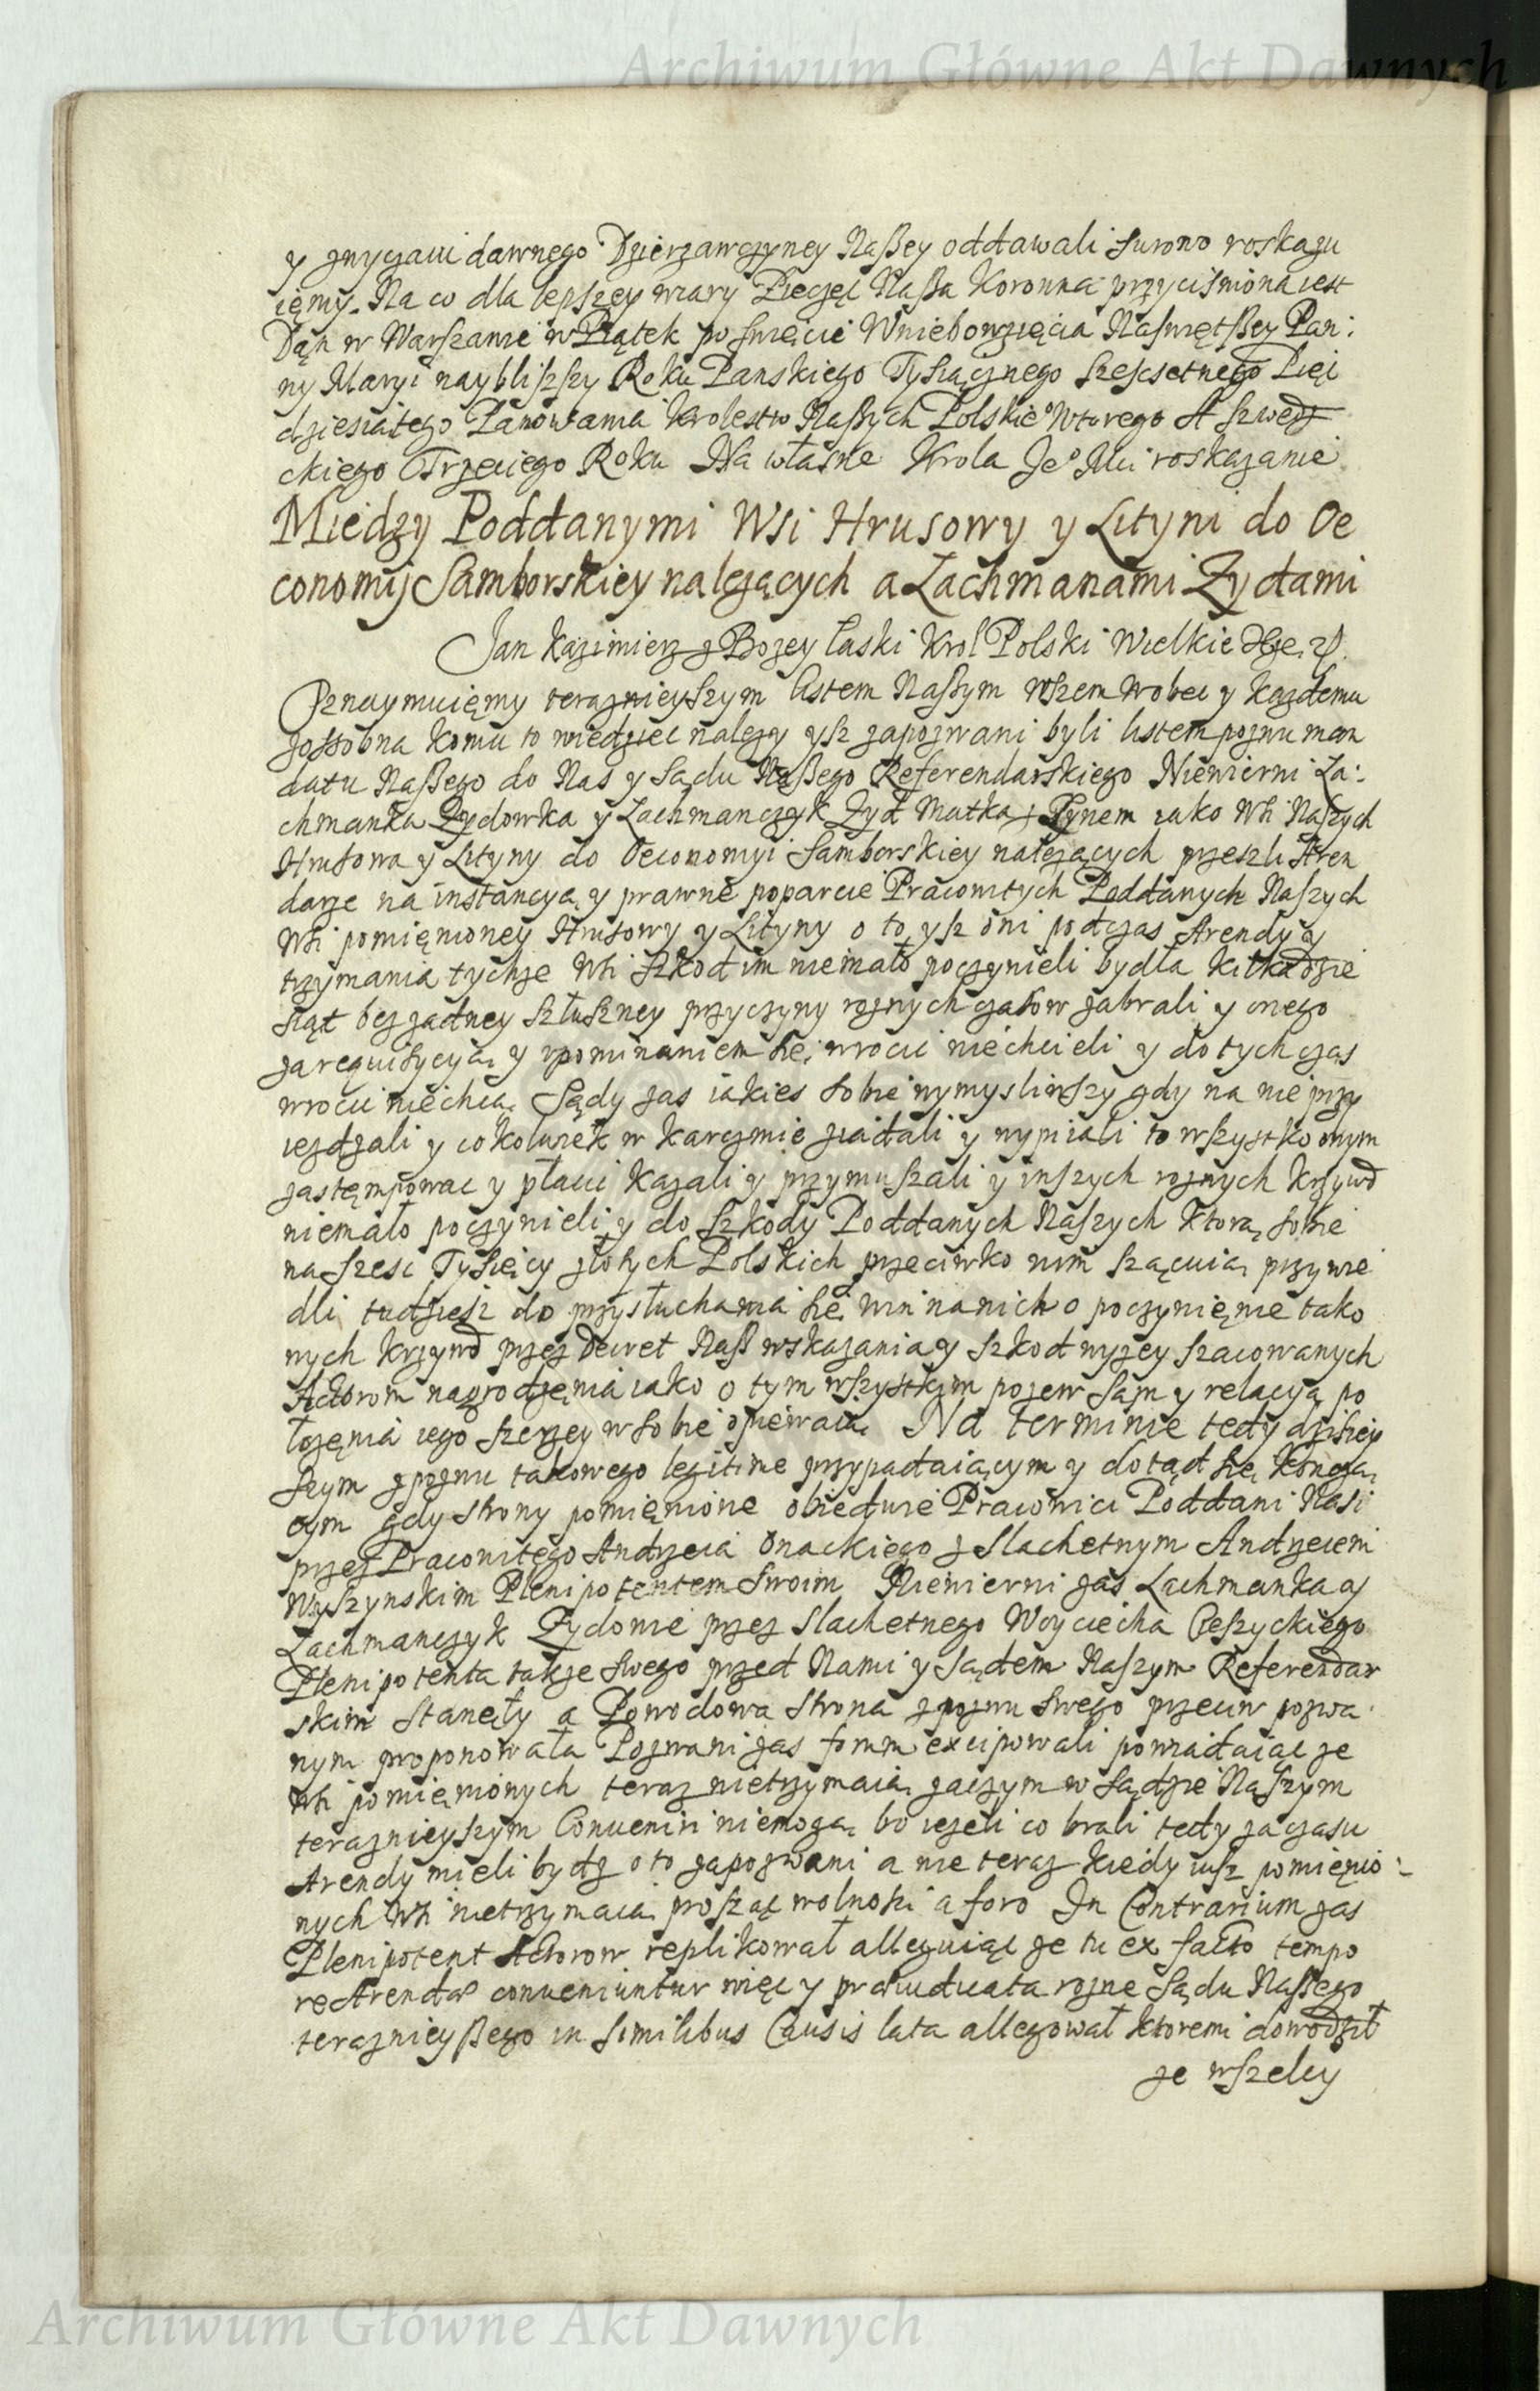 Archiwum Główne Akt Dawnych
y zwyczaiu dawnego Dzierzawczyney Naszey oddawali surowo roskazu
ięmy. Na co dla lepszey wiary Pieczęć Nasza Koronna przycisniona iest
Dąn w Warszawie w Piątek po święcie Wniebowzięcia Naświętszey Pan:
ny Maryi naybliższy Roku Panskiego Tysiącznego Szescsetnego Pięc
dziesiątego Panowania Krolestw Naszych Polskie° Wtorego A Szwedz
ckiego Trzeciego Roku Na własne Krola Je° Mci roskazanie
Miedzy Poddanymi Wsi Hrusowy y Lityni do Oe
conomij Samborskiey nalezących a Lachmanami Zydami
Jan Kazimierz z Bozey łaski Krol Polski Wielkie Xże. 
Oznaymuięmy terazniejszym listem Naszym wszem wobec y kazdemu
zossobna komu to wiedziec nalezy ysz zapozwani byli listem pozwu man
datu Naszego do Nas y Sądu Naszego Referendarskiego Niewierni La:
chmanka Zydowka y Lachmanczyk Zyd Matka z Synem iako Wsi Naszych
Hrusowa y Lityny do Oeconomyi Samborskiey nalezących przeszli Aren
darze na instancyą y prawne poparcie Pracowitych Poddanych Naszych
Wsi pomięnioney Hrusowy y Lityny o to ysz oni podczas Arendy y
trzymania tychze Wsi szkod im niemało poczynieli bydła kilkadzie
siąt bez zadney słuszney przyczyny roznych czasow zabrali y onego
za requisycyą y upominaniem się wrocic niechcieli y dotychczas
wrocic niechcą Sądy zas iakies sobie wymysliwszy gdy na nie przy
iezdzali y cokolwiek w karczmie ziadali y wypiiali to wszystko onym
zastęmpowac y płacic kazali y przymuszali y inszych roznych krzywd
niemało poczynieli y do szkody Poddanych Naszych ktorą sobie
na szesc Tysięcy złotych Polskich przeciwko nim szącuią przywie
dli tudziesz do przysłuchania się win na nich o poczynięnie tako
wych krzywd przez Decret Nasz wskazania y szkod wyzey szacowanych
Actorom nagrodzęnia iako o tym wszystkim pozew sąm y relacyą po
łozęnia iego szerzey w sobie opiewaią Na terminie tedy dzisiey
szym z pozwu takowego legitime przypadaiącym y dotąd się kąncą
cym gdy strony pomięnione obiedwie Pracowici Poddani Nasi
przez Pracowitego Andrzeia Onackiego z Slachetnym Andrzeiem
Wyszynskim Plenipotentem Swoim Niewierni zas Lachmanka y
Lachmanczyk Zydowie przez Slachetnego Woyciecha Ceszyckiego
Plenipotenta takze swego przed Nami y Sądem Naszym Referendar
skim stanęły a Powodowa Strona z pozwu swego przeciw pozwa
nym proponowała Pozwani zas forum excipowali powiadaiąc ze
Wsi pomięnionych teraz nietrzymaią zaczym w Sądzie Naszym
terazniejszym Conveniri niemogą bo iezeli co brali tedy za czasu
Arendy mieli bydz o to zapozwani a nie teraz kiedy iusz pomięnio:
nych Wsi nietrzymaią prosząc wolnosci a foro In Contrarium zas
Plenipotent Actorow replikował alleguiąc ze tu ex facto tempo
re Arendae conveniuntur więc y praeiudicata rozne Sądu Naszego
terazniejszego in similibus Causis lata allegował ktoremi dowodził
ze wszelcy
Archiwum Główne Akt Dawnych